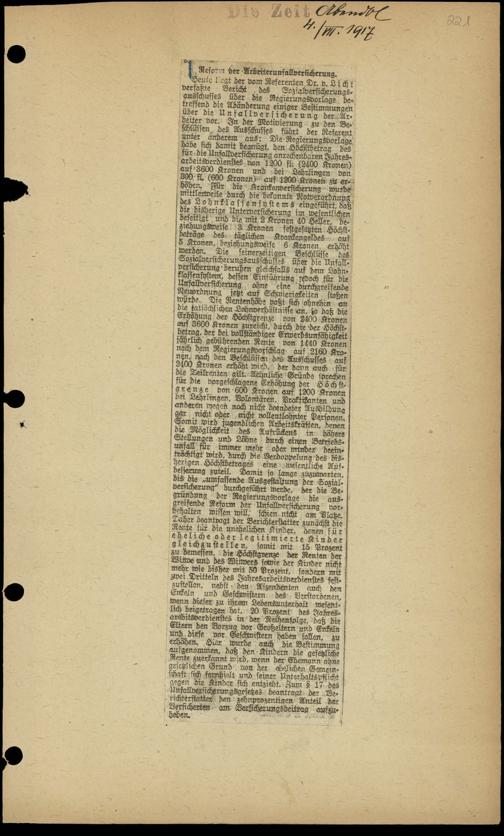 Die Zeit
Abendbl
4./VII. 1917
221
Reform der Arbeiterunfallversicherung.
Heute liegt der vom Referenten Dr. v. Licht
verfaßte Bericht des Sozialversicherungs-
ausschusses über die Regierungsvorlage be-
treffend die Abänderung einiger Bestimmungen
über die Unfallversicherung der Ar-
beiter vor. In der Motivierung zu den Be-
schlüssen des Ausschusses führt der Referent
unter anderem aus: Die Regierungsvorlage
habe sich damit begnügt, den Höchstbetrag des
für die Unfallversicherung anrechenbaren Jahres-
arbeitsverdienstes von 1200 fl. (2400 Kronen)
auf 3600 Kronen und bei Lehrlingen von
300 fl. (600 Kronen) auf 1200 Kronen zu er-
höhen. Für die Krankenversicherung wurde
mittlerweile durch die bekannte Notverordnung
des Lohnklassensystems eingeführt, daß
die bisherige Unterversicherung im wesentlichen
beseitigt und die mit 2 Kronen 40 Heller, be-
ziehungsweise 3 Kronen festgesetzten Höchst-
beträge des täglichen Krankengeldes auf
5 Kronen, beziehungsweise 6 Kronen erhöht
werden. Die seinerzeitigen Beschlüsse des
Sozialversicherungsausschusses über die Unfall-
versicherung beruhen gleichfalls auf dem Lohn-
klassensystem, dessen Einführung jedoch für die
Unfallversicherung ohne eine durchgreifende
Neuordnung jetzt auf Schwierigkeiten stoßen
würde. Die Rentenhöhe paßt sich ohnehin an
die tatsächlichen Lohnverhältnisse an, so daß die
Erhöhung der Höchstgrenze von 2400 Kronen
auf 3600 Kronen zureicht, durch die der Höchst-
betrag, der bei vollständiger Erwerbsunfähigkeit
jährlich gebührenden Rente von 1440 Kronen
nach dem Regierungsvorschlag auf 2160 Kro-
nen, nach den Beschlüssen des Ausschusses auf
2400 Kronen erhöht wird, der dann auch für
die Teilrenten gilt. Aehnliche Gründe sprechen
für die vorgeschlagene Erhöhung der Höchst-
grenze von 600 Kronen auf 1200 Kronen
bei Lehrlingen, Volontären, Praktikanten und
anderen wegen noch nicht beendeter Ausbildung
gar nicht oder nicht vollentlohnter Personen.
Somit wird jugendlichen Arbeitskräften, denen
die Möglichkeit des Aufrückens in höhere
Stellungen und Löhne durch einen Betriebs-
unfall für immer mehr oder minder beein-
trächtigt wird, durch die Verdoppelung des bis-
herigen Höchstbetrages eine wesentliche Auf-
besserung zuteil. Damit so lange zuzuwarten,
bis die „umfassende Ausgestaltung der Sozial-
versicherung“ durchgeführt werde, der die Be-
gründung der Regierungsvorlage die aus-
greifende Reform der Unfallversicherung vor-
behalten wissen will, schien nicht am Platze.
Daher beantragt der Berichterstatter zunächst die
Rente für die unehelichen Kinder, denen für
eheliche oder legitimierte Kinder
gleichzustellen, somit mit 15 Prozent
zu bemessen, die Höchstgrenze der Renten der
Witwe und des Witwers sowie der Kinder nicht
mehr wie bisher mit 50 Prozent, sondern mit
zwei Dritteln des Jahresarbeitsverdienstes fest-
zustellen, nebst den Aszendenten auch den
Enkeln und Geschwistern des Verstorbenen,
wenn dieser zu ihrem Lebensunterhalt wesent-
lich beigetragen hat, 20 Prozent des Jahres-
arbeitsverdienstes in der Reihenfolge, daß die
Eltern den Vorzug vor Großeltern und Enkeln
und diese vor Geschwistern haben sollen, zu
erhöhen. Hier wurde auch die Bestimmung
aufgenommen, daß den Kindern die gesetzliche
Rente zuerkannt wird, wenn der Ehemann ohne
gesetzlichen Grund von der ehelichen Gemein-
schaft sich fernhielt und seiner Unterhaltspflicht
gegen die Kinder sich entzieht. Zum § 17 des
Unfallversicherungsgesetzes beantragt der Be-
richterstatter den zehnprozentigen Anteil der
Versicherten am Versicherungsbeitrag aufzu-
heben.